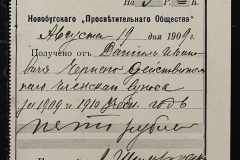 На 5 р.
Новобугскаго „Просвѣтительнаго Общества“
Августа 19 дня 1909 г.
Получено отъ Даніила Ивано-
вича Чернаго Действительн
членскаго взноса
за 1909 и 1910 годъ
пять рублей